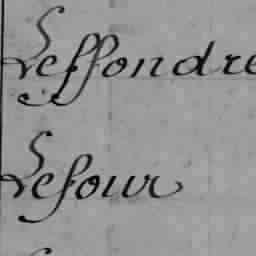 Leffondre
Lefour